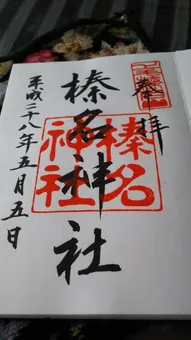 奉拝
榛名神社
榛名神社
平成二十八年五月五日